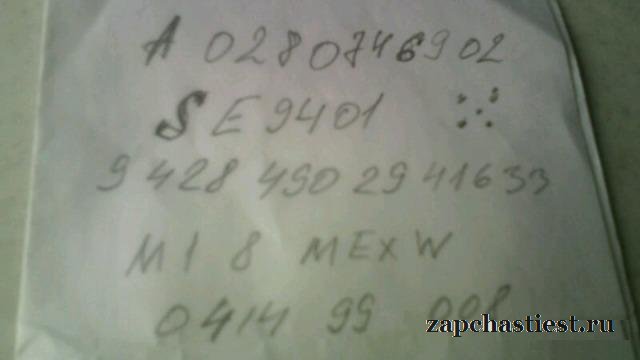 A 0280746902
SE9401
9 428 490 29 41633
M1 8 MEXW
0414 99 008
zapchastiest.ru